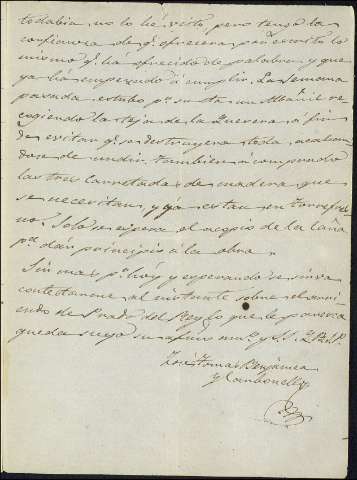 todabia no lo hé visto, pero tengo la
confianza de q. ofrecera por escrito lo
mismo q. ha ofrecido de palabra, y que
ya há empezado á cumplir. La semana
pasada estubo pr. su cta. un Albañil re-
cogiendo la teja de la á fin
de evitar q. se destruyera toda, acaban-
dose de undir. Tambien á comprado
las tres carretadas de madera que
se necesitan, y yá estan en
Solo se espera el acopio de la
pa. dar principio á la obra.
Sin mas pr. hoy y esperando se sirva
contestarme al instante sobre el arri-
endo de Prado del Rey lo que le parezca
queda suyo su afmo. y S. S.
José Tomas Benjumea
y Carbonell